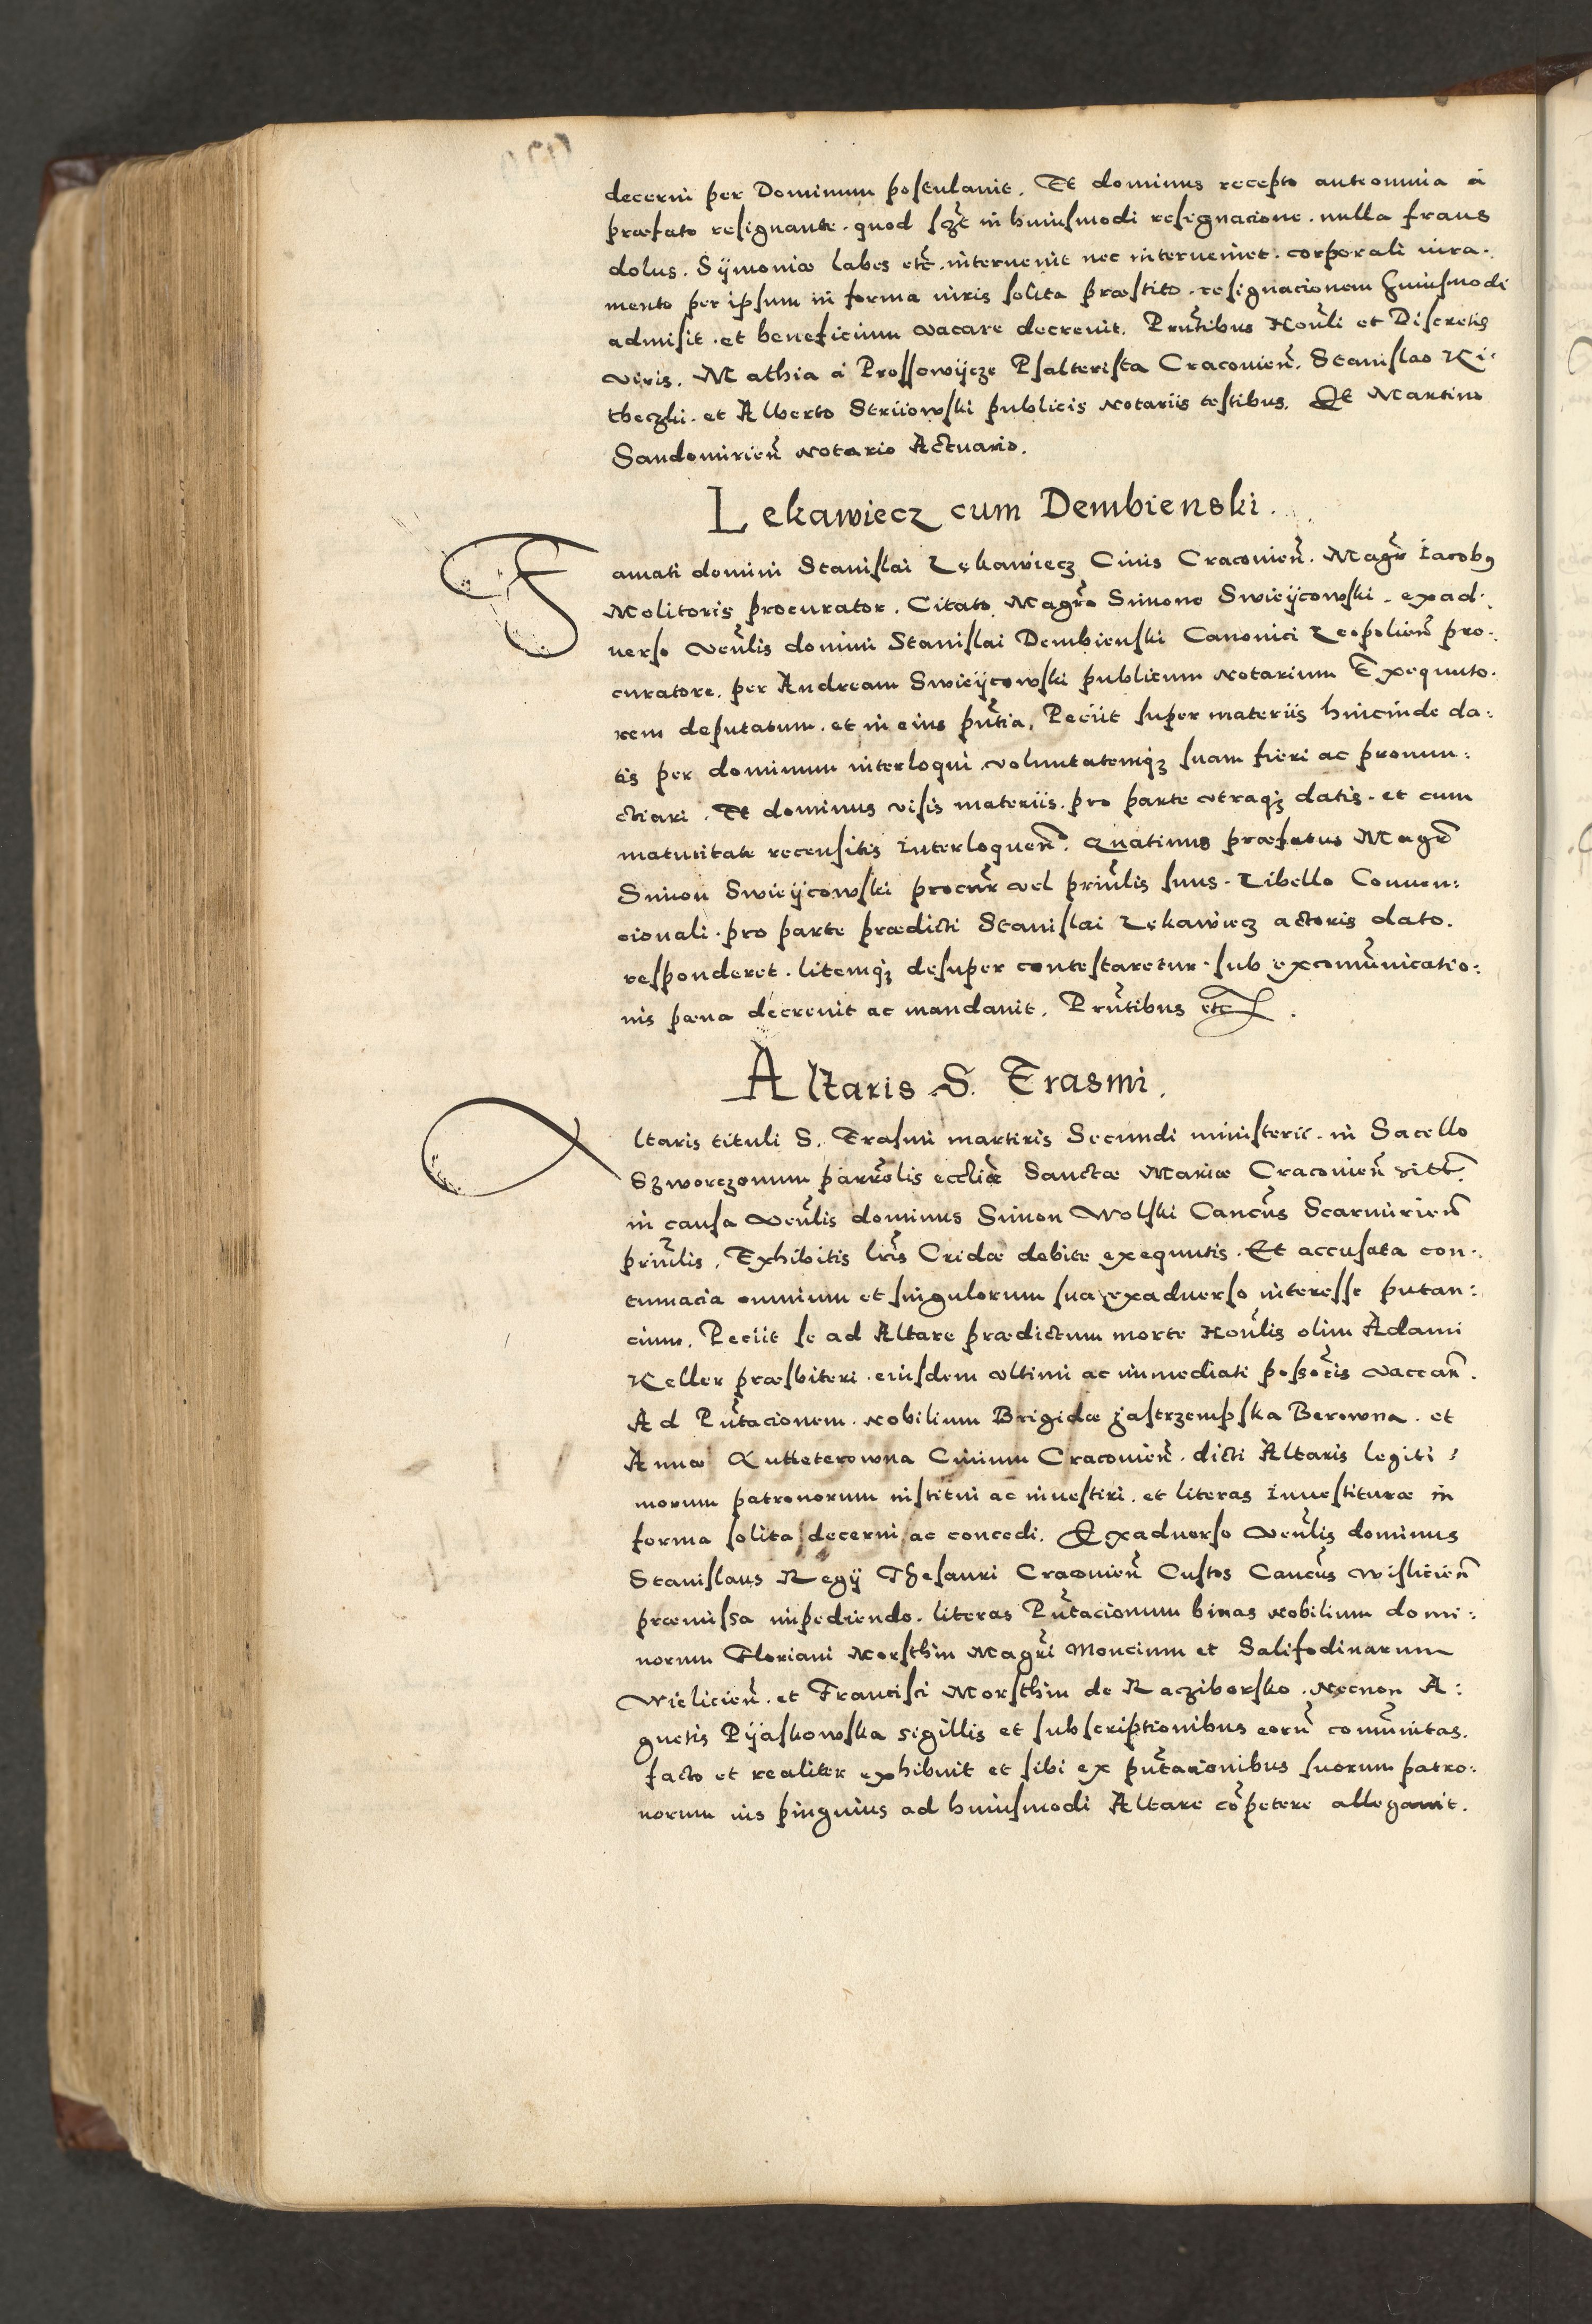 decerni per Dominum postulavit. Et dominus recepto anteomnia á
præfato resignante. quod scȝt in huiusmodi resignacione. nulla fraus
dolus. Sÿmoniæ labes etc̃. intervenit nec interveniet. corporali iura-
mento per ipsum in forma iuris solita præstito. resignacionem huiusmodi
admisit. et beneficium vacare decrevit. Prñtibus Honl̃i et Discretis
viris. Mathia á Prossowÿcze Psalterista Cracovien̄. Stanislao Ki-
theczki. et Alberto Striiowski publicis Notariis testibus. Et Martino
Sandomirien̄ Notario Actuario.
Lekawiecz cum Dembienski.
Famati domini Stanislai Lękawiecz Civis Cracovien̄. Magr̃ Iacobꝯ
Molitoris procurator. Citato Magr̃o Simone Swieÿcowski. exad-
verso Venl̃is domini Stanislai Dembienski Canonici Leopolien̄ pro-
curatore. per Andream Swieÿcowski publicum Notarium Exequuto-
rem deputatum. et in eius pñtia. Peciit super materiis hincinde da:
tis per dominum interloqui voluntatemqȝ suam fieri ac pronun:
ctiari. Et dominus visis materiis. pro parte utraqȝ datis. et cum
maturitate recensitis interloquen̄. Quatinus præfatus Magr̃
Simon Swieÿcowski procur̃ vel prinl̃is suus. Libello Conven:
cionali. pro parte prædicti Stanislai Lękawiecz actoris dato.
responderet. litemqȝ desuper contestaretur. sub excomūnicatio:
nis pæna decrevit ac mandavit. Prñtibus etc.
Altaris S. Erasmi.
Altaris tituli S. Erasmi martiris Secundi ministerii. in Sacello
Szworczonum parro̅lis eccl̃iæ Sanctæ Mariæ Cracovien̄ sitt̃.
in causa Venl̃is dominus Simon Wolski Canc̃us Scarmirien̄
prinl̃is. Exhibitis lr̃is Cridæ debite exequutis. Et accusata con-
tumacia omnium et singulorum sua exadverso interesse putan:
cium. Peciit se ad Altare prædictum morte Honl̃is olim Adami
Keller præsbiteri. eiusdem ultimi ac immediati possor̃is vaccan̄.
Ad Pñtacionem. Nobilium Brigidæ Jastrzempska Berowna. et
Annæ Kutteterowna Civium Cracovien̄. dicti Altaris legiti:
morum patronorum institui ac investiri. et literas investituræ in
forma solita decerni ac concedi. Exadverso Venl̃is dominus
Stanislaus Regÿ Thesauri Cracovien̄ Custos Canc̃us Wislicien̄
præmissa impediendo. literas Pñtacionum binas Nobilium domi:
norum Floriani Morsthin Magr̃i Moncium et Salifodinarum
Wielicien̄. et Francisci Morsthin de Raciborsko. Necnon A:
gnetis Pÿaskowska sigillis et subscriptionibus eorū comūnitas.
facto et realiter exhibuit et sibi ex pñtacionibus suorum patro:
norum ius pinguius ad huiusmodi Altare cōpetere allegavit.